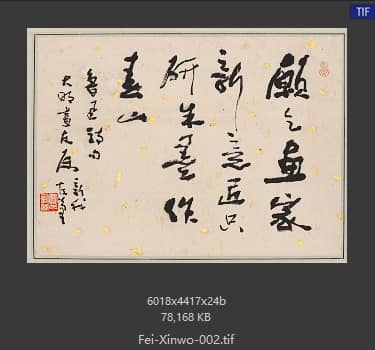 TIF
願乞畫家
新意匠只
研朱墨作
春山
魯迅詩句
大明畫友屬
新我左筆
6018x4417x24b
78,168 KB
Fei-Xinwo-002.tif